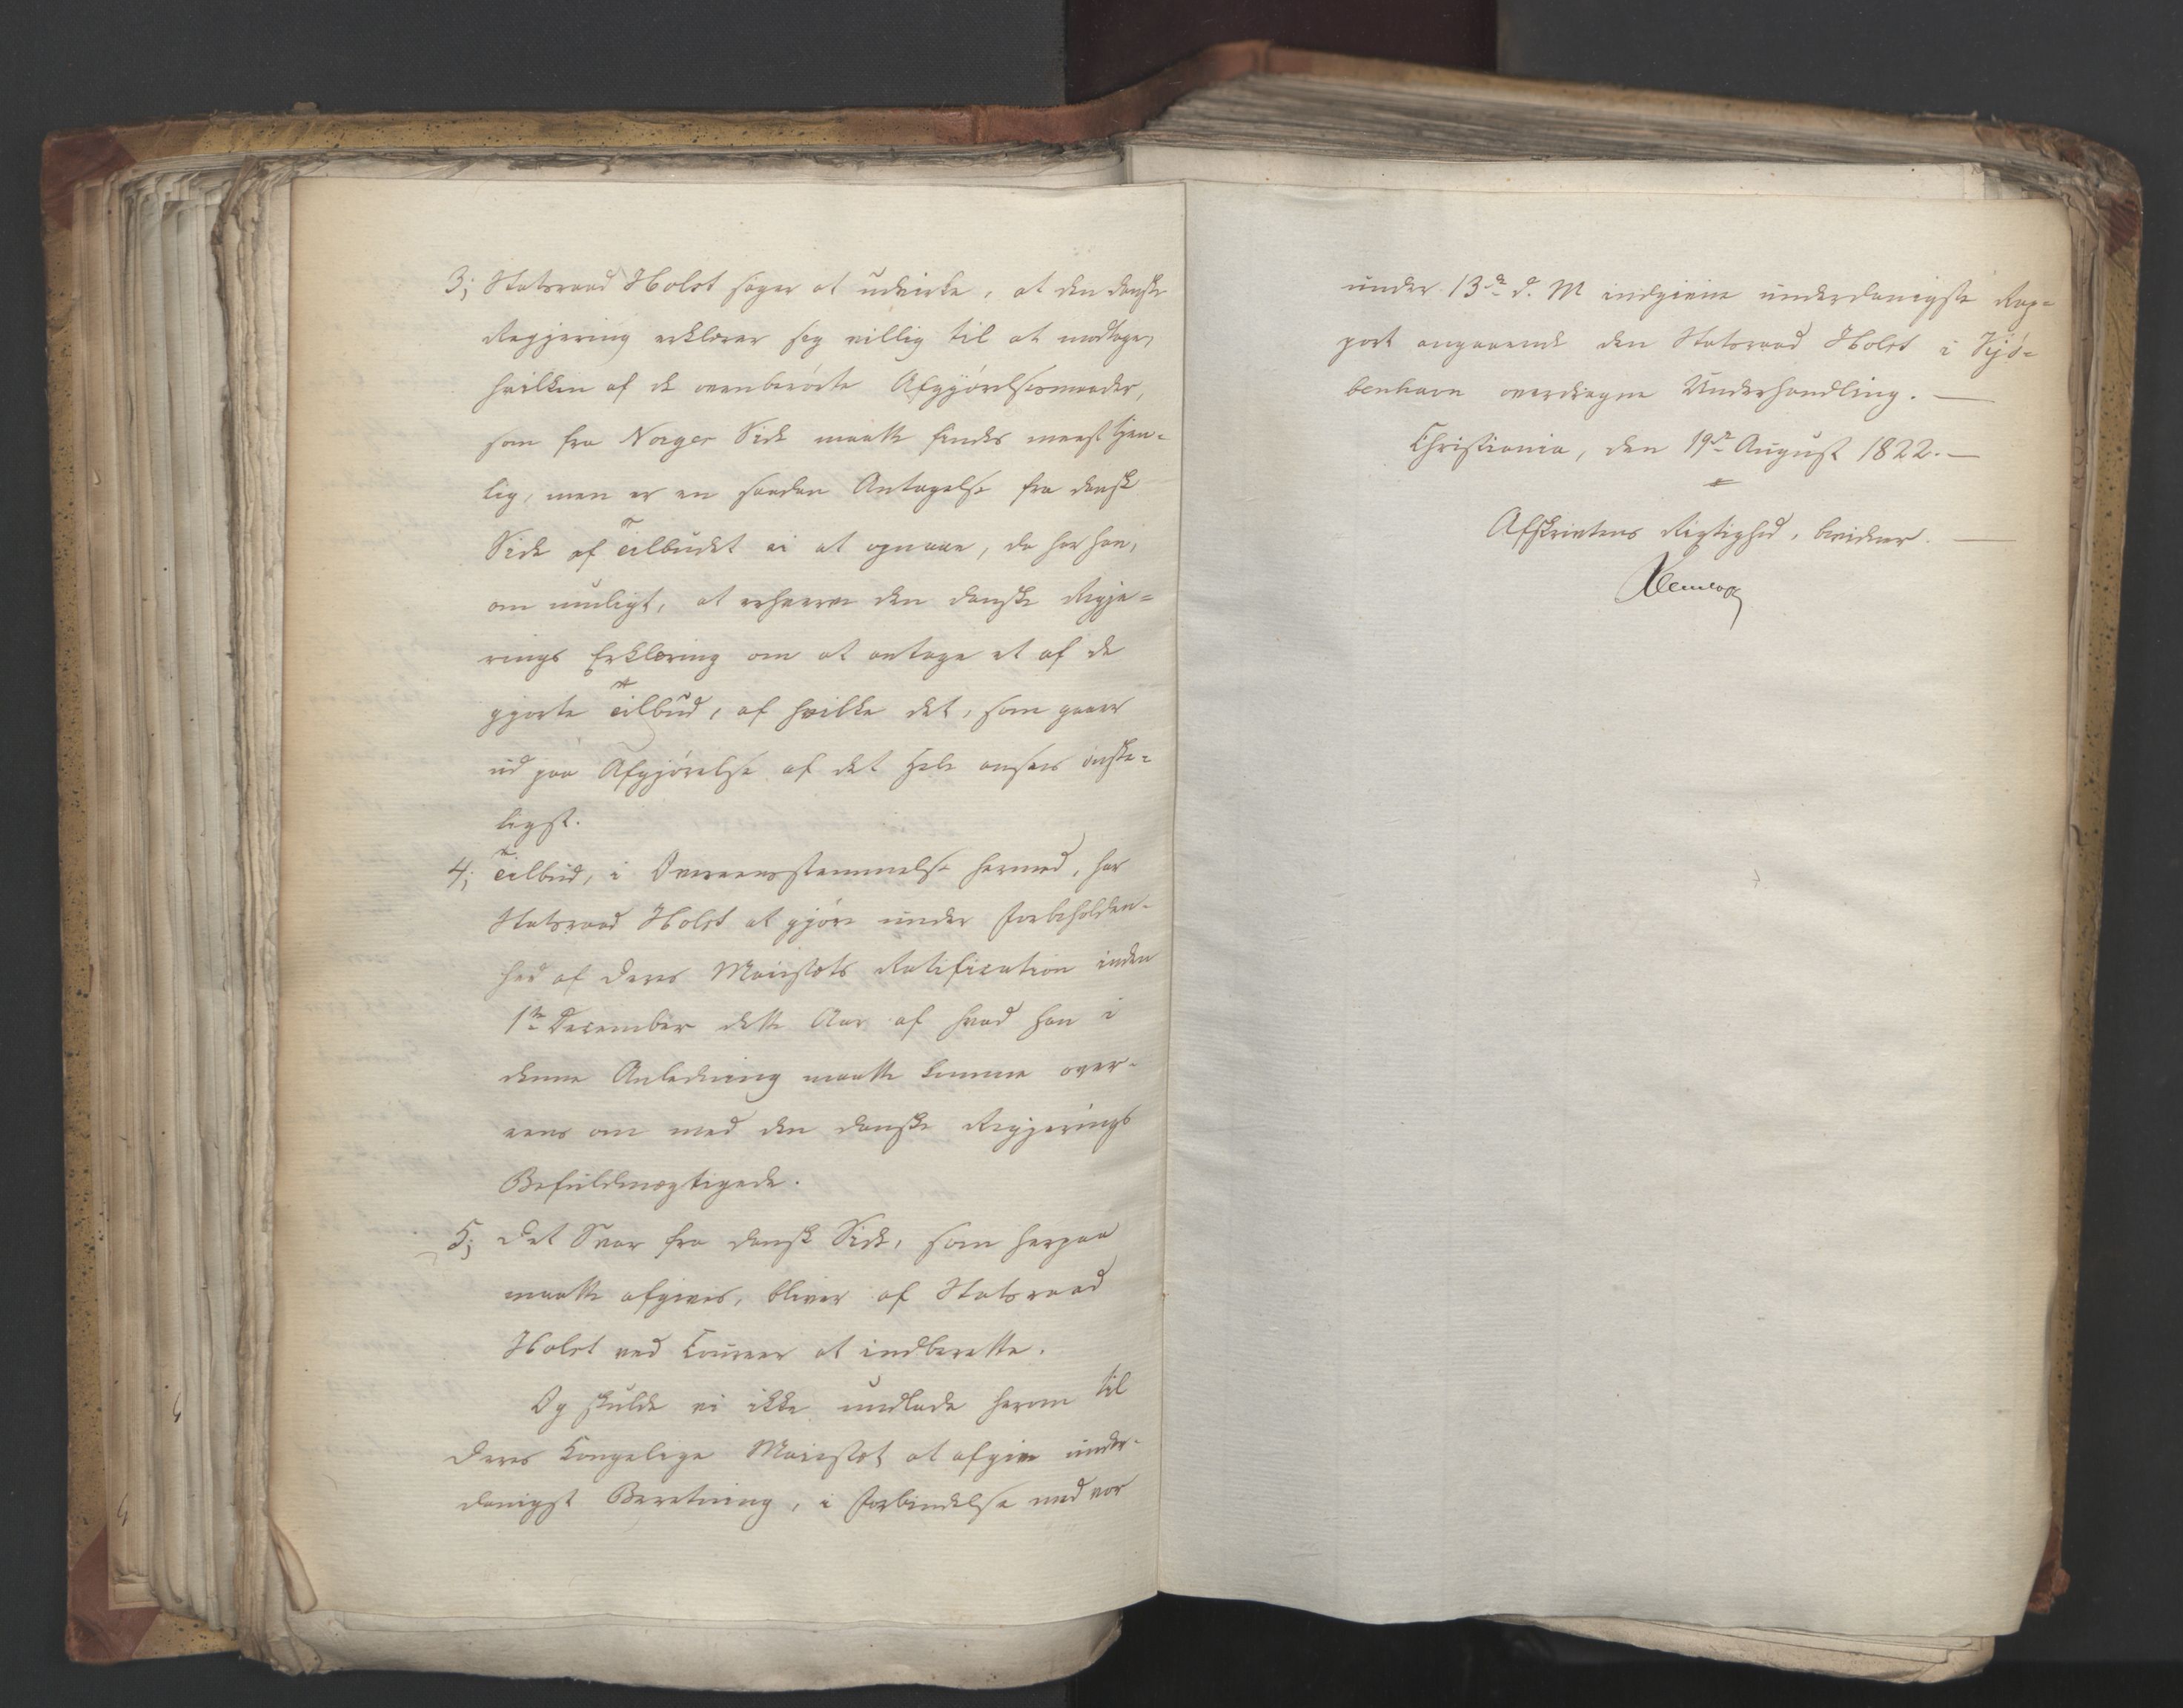 3; Statsraad Holst søger at udvirke, at den danske
Regjering erklærer sig villig til at modtage,
hvilken af de ovenberørte Afgjørelsesmaader,
som fra Norges Side maatte findes meest tjen-
lig, men er en saadan Antagelse fra dansk
Side af Tilbudet ei at opnaae, da har han,
om muligt, at erhverve den danske Regje-
rings Erklæring om at antage et af de
gjorte Tilbud, af hvilke det, som gaaer
ud paa Afgjørelse af det Hele ansees ønske-
ligst.
4; Tilbud, i Overeensstemmelse hermed, har
Statsraad Holst at gjøre under Forbeholden-
hed af Deres Maiestæts Ratification inden
1ste December dette Aar af hvad han i
denne Anledning maatte komme over-
eens om med den danske Regjerings
Befuldmægtigede.
5; Det Svar fra dansk Side, som herpaa
maatte afgives, bliver af Statsraad
Holst ved Coureer at indberette.
Og skulde vi ikke undlade herom til
Deres Kongelige Maiestæt at afgive under-
danigst Beretning, i Forbindelse med vor
under 13de d. M indgivne underdanigste Rap-
port angaaende den Statsraad Holst i Kjø-
benhavn overdragne Underhandling. —
Christiania, den 19de August 1822. —
Afskrivtens Rigtighed, bevidner. —